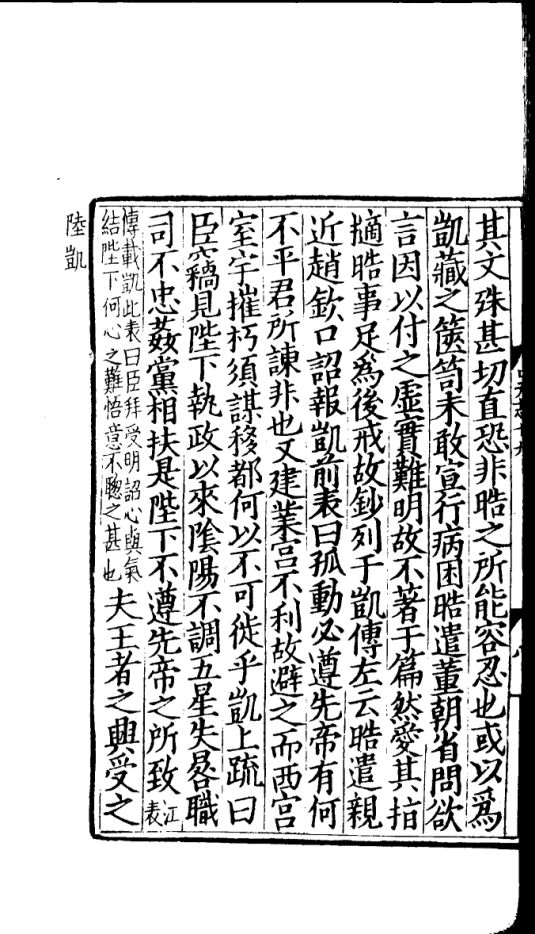 其文殊甚切直恐非晧之所能容忍也或以爲
凱藏之篋笥未敢宣行病困晧遣董朝省問欲
言因以付之虛實難明故不著于篇然愛其指
擿晧事足爲後戒故鈔列于凱傳左云晧遣親
近趙欽口詔報凱前表曰孤動必遵先帝有何
不平君所諫非也又建業宮不利故避之而西宮
室宇摧朽須謀移都何以不可徙乎凱上疏曰
臣竊見陛下執政以來陰陽不調五星失晷職
司不忠姦黨相扶是陛下不遵先帝之所致江表
傳載凱此表曰臣拜受明詔心與氣結陛下何心之難悟意不聰之甚也夫王者之興受之
陸凱